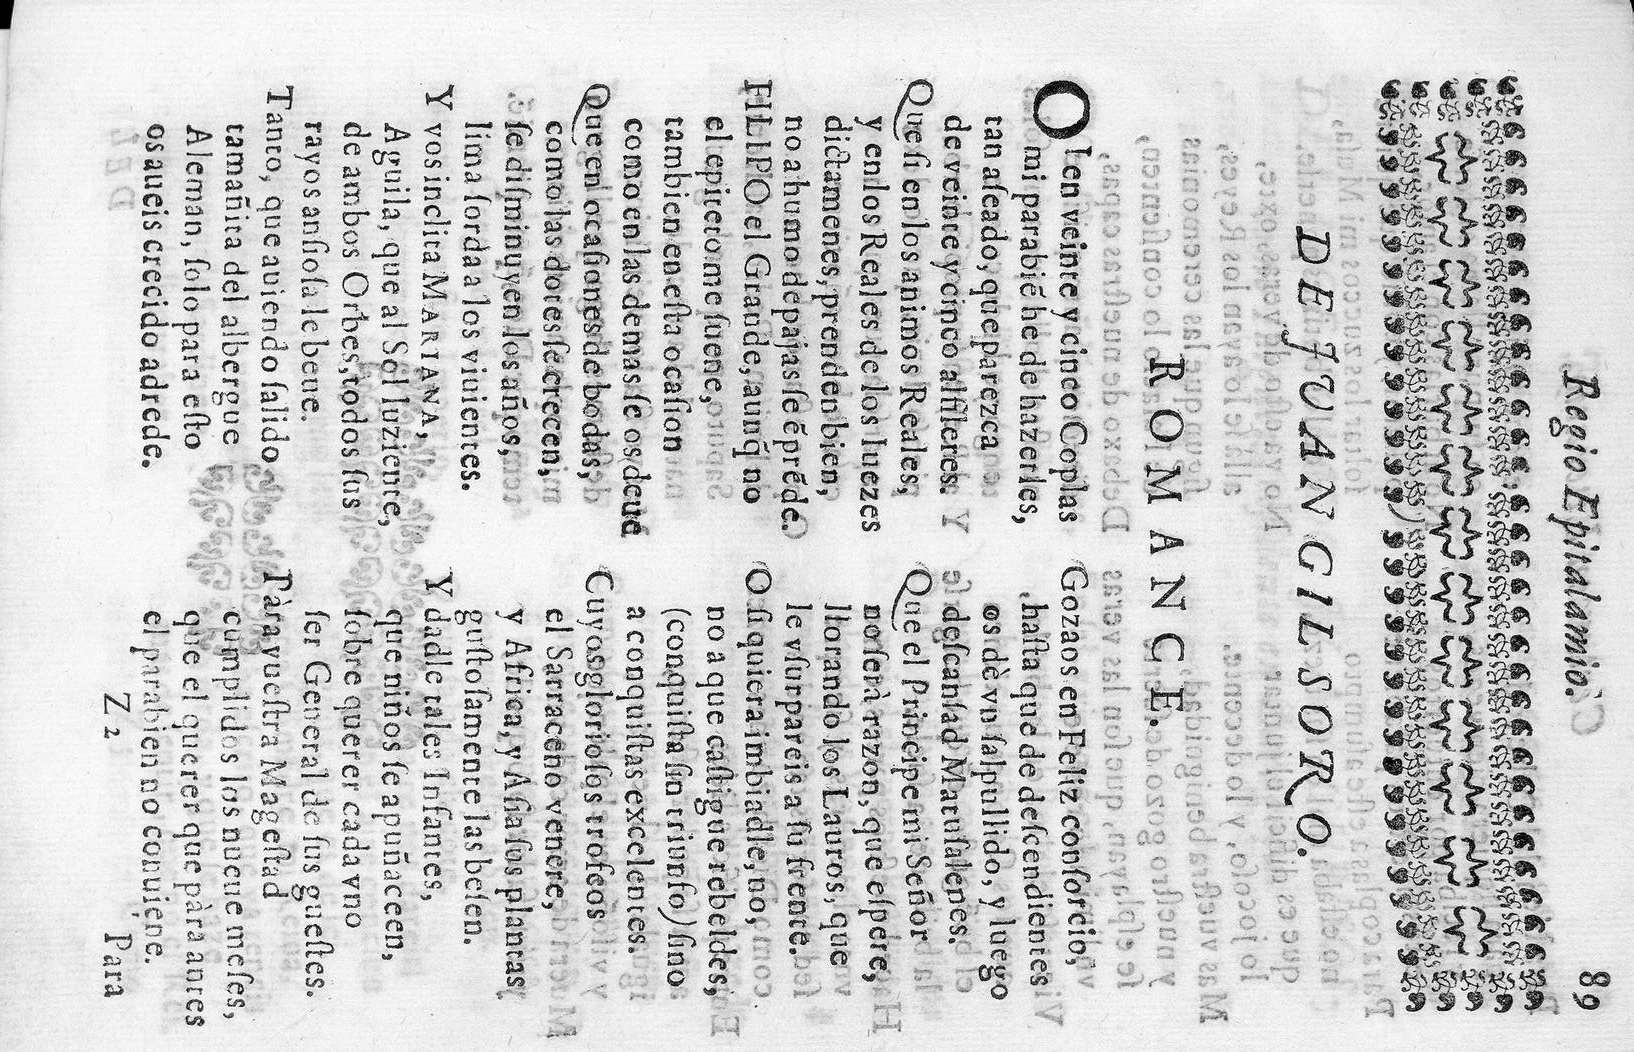 Regio Epitalamio. 89
DE JUAN GIL SORO.
ROMANCE.
OI en veinte y cinco Coplas
mi parabiẽ he de hazerles,
tan aſeado, que parezca
de veinte y cinco alfileres.
Que ſi en los animos Reales,
y en los Reales de los Iuezes
dictamenes, prenden bien,
no a humo de pajas ſe ẽprẽde.
FILIPO el Grande, aunq̃ no
el epiteto me ſuene,
tambien en eſta ocaſion
como en las demas ſe os deue
Que en ocaſiones de bodas,
como las dotes ſe crecen,
ſe diſminuyen los años,
lima ſorda a los viuientes.
Y vos inclita MARIANA,
Aguila, que al Sol luziente,
de ambos Orbes, todos ſus
rayos anſioſa le beue.
Tanto, que auiendo ſalido
tamañita del albergue
Aleman, ſolo para eſto
os aueis crecido adrede.
Gozaos en Feliz conſorcio,
haſta que de deſcendientes
os dè vn ſalpullido, y luego
deſcanſad Matuſalenes.
Que el Principe mi Señor
no ſerà razon, que eſpere,
llorando los Lauros, que
le vſurpareis a ſu frente.
O ſi quiera imbiadle, no,
no a que caſtigue rebeldes,
(conquiſta ſin triunfo) ſino
a conquiſtas excelentes.
Cuyos glorioſos trofeos
el Sarraceno venere,
y Africa, y Aſia ſus plantas
guſtoſamente las beſen.
Y dadle tales Infantes,
que niños ſe apuñaceen,
ſobre querer cada vno
ſer General de ſus gueſtes.
Pàra vueſtra Mageſtad
cumplidos los nueue meſes,
que el querer que pàra antes
el parabien no conuiene.
Z 2 Para